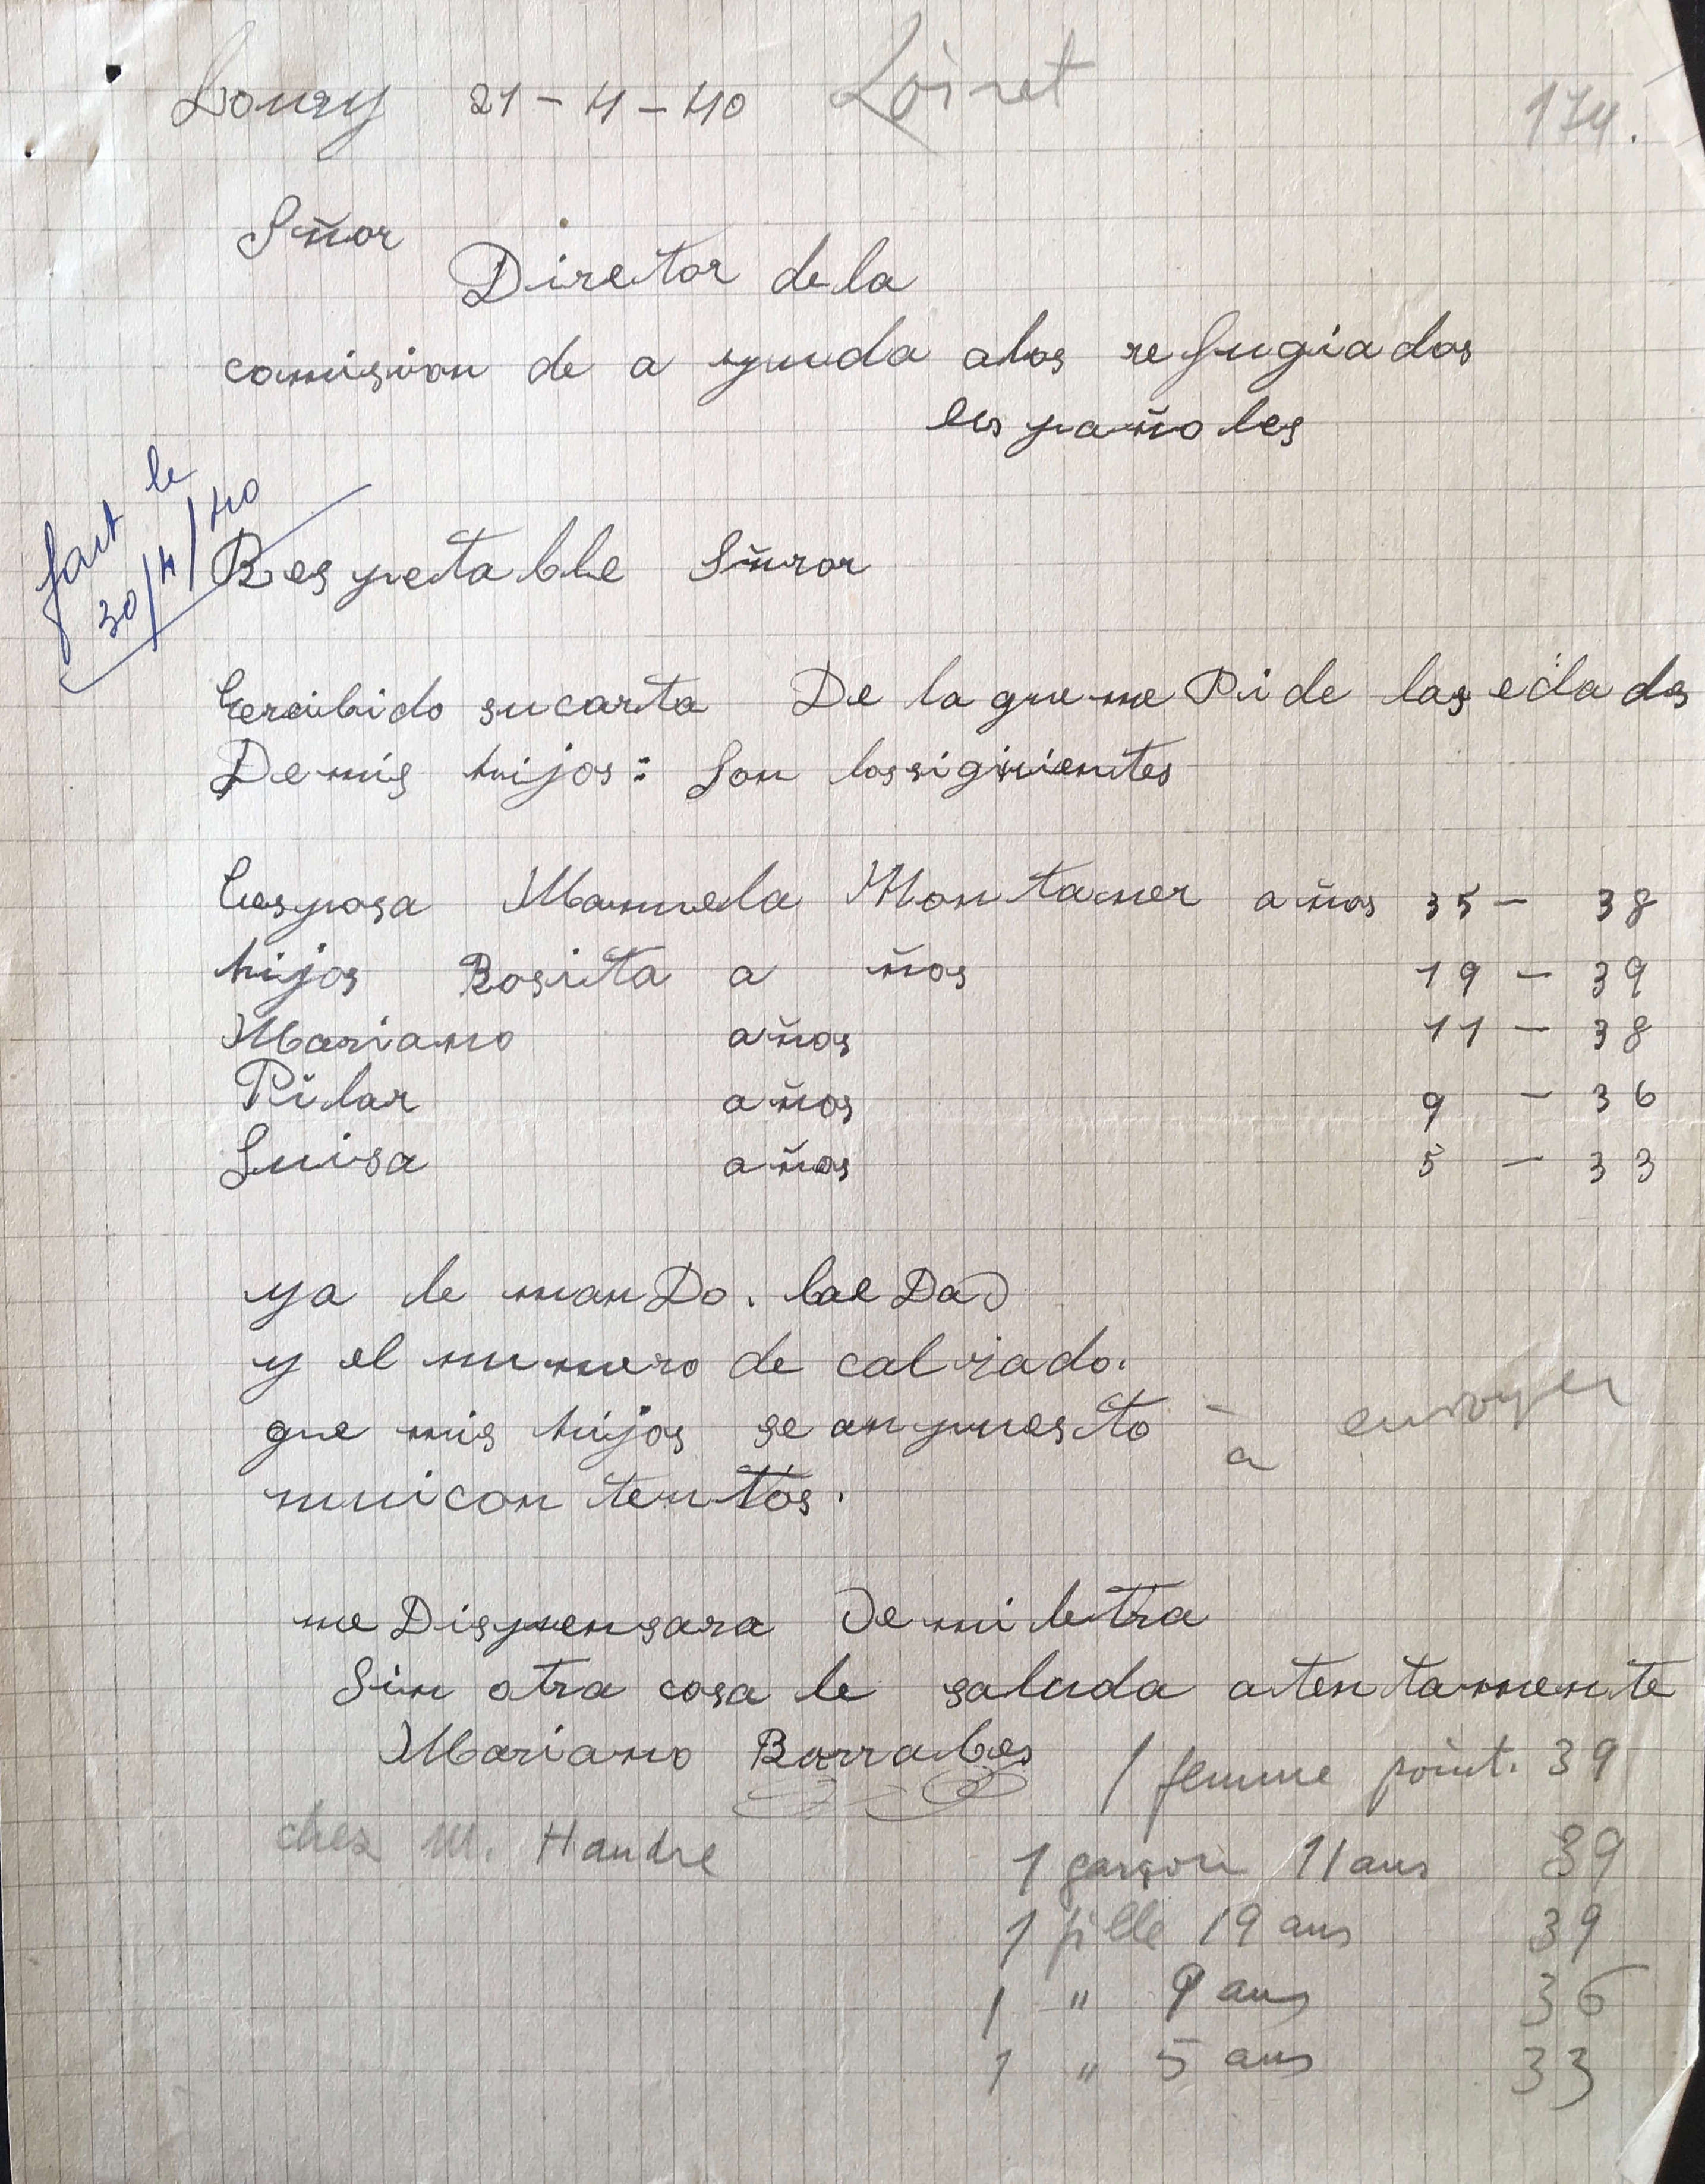 Loury 21-4-40 Loiret
174.
Sñor
Diretor de la
comision de a yuda alos refugiados
españoles
fait le
30/4/40
Respetable Sñror
Ereibido su carta De la que me Pide las edades
De mis hijos: Son los sigientes
Esposa Manuela Montaner años 35 - 38
hijos Rosita a ños 19 - 39
Mariano años 11 - 38
Pilar años 9 - 36
Luisa años 5 - 33
ya le manDo. laeDaD
y el numero de calzado.
que mis hijos se an puesto - a envoyer
mui con tentos.
me Dispensara De mi letra
Sin otra cosa le saluda atentamente
Mariano Barrabes
1 femme point. 39
chez M. Handre
1 garçon 11 ans 39
1 fille 19 ans 39
1 " 9 ans 36
1 " 5 ans 33